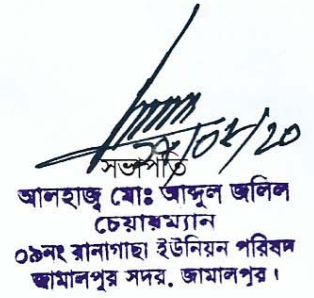 সভাপতি
আলহাজ্ব মোঃ আব্দুল জলিল
চেয়ারম্যান
০৯নং রানাগাছা ইউনিয়ন পরিষদ
জামালপুর সদর, জামালপুর।